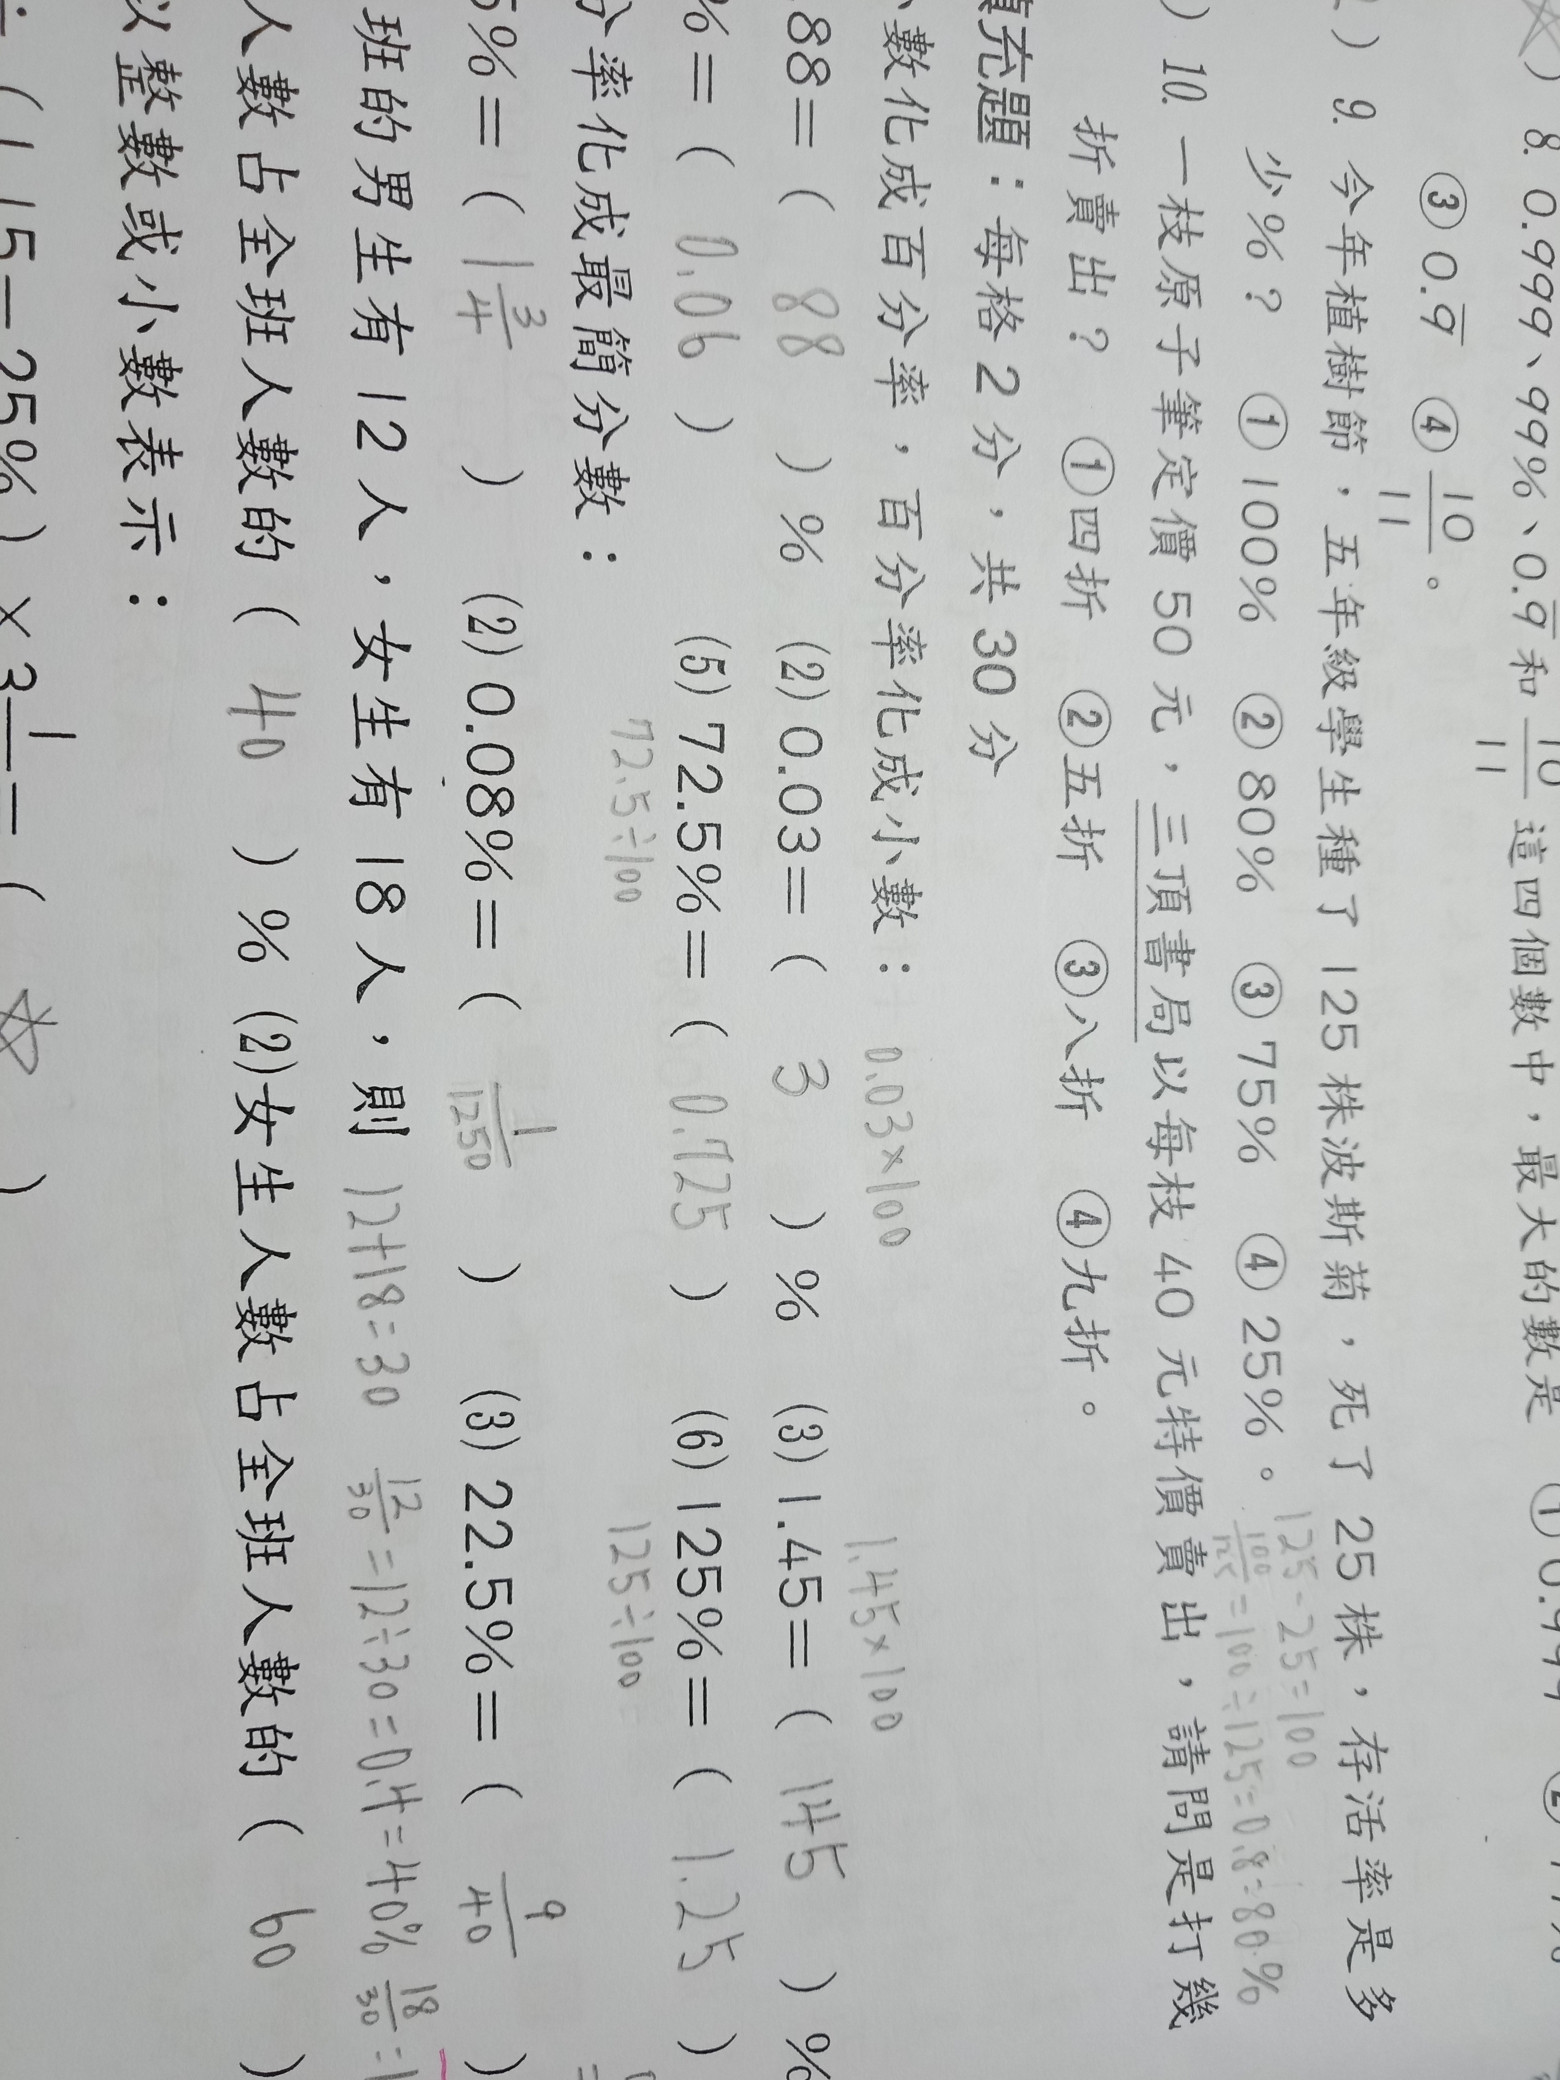 ) 8. 0.999、99%、0.9̅和10/11這四個數中，最大的數是 ①0.999 ②
③0.9̅ ④10/11。
) 9. 今年植樹節，五年級學生種了125株波斯菊，死了25株，存活率是多
125-25=100
少%？ ①100% ②80% ③75% ④25%。
100/125=100÷125=0.8=80%
) 10. 一枝原子筆定價50元，三頂書局以每枝40元特價賣出，請問是打幾
折賣出？ ①四折 ②五折 ③八折 ④九折。
填充題：每格2分，共30分
數化成百分率，百分率化成小數：
0.03×100 1.45×100
.88=( 88 )% (2)0.03=( 3 )% (3)1.45=( 145 )%
%=( 0.06 ) (5)72.5%=( 0.725 ) (6)125%=( 1.25 )
72.5÷100 125÷100
分率化成最簡分數：
5%=( 1 3/4 ) (2)0.08%=( 1/1250 ) (3)22.5%=( 9/40 )
班的男生有12人，女生有18人，則 12+18=30 12/30=12÷30=0.4=40% 18/30=1
人數占全班人數的( 40 )% (2)女生人數占全班人數的( 60 )
以整數或小數表示：
(1.15-25%)×3 1/ =( )